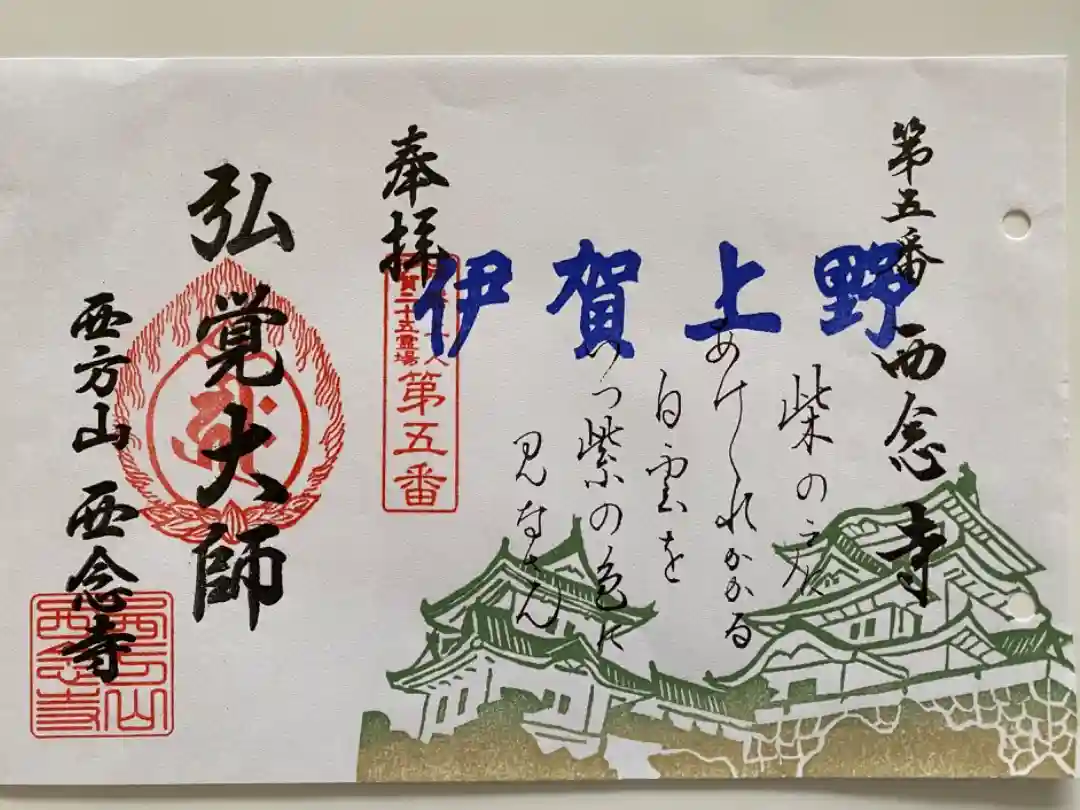 第五番 西念寺
伊賀上野
柴の戸に
あけくれかかる
白雲を
いつ紫の色に
見なさん
奉拝
賀二十五霊場
第五番
弘覚大師
西方山 西念寺
西方山
西念寺